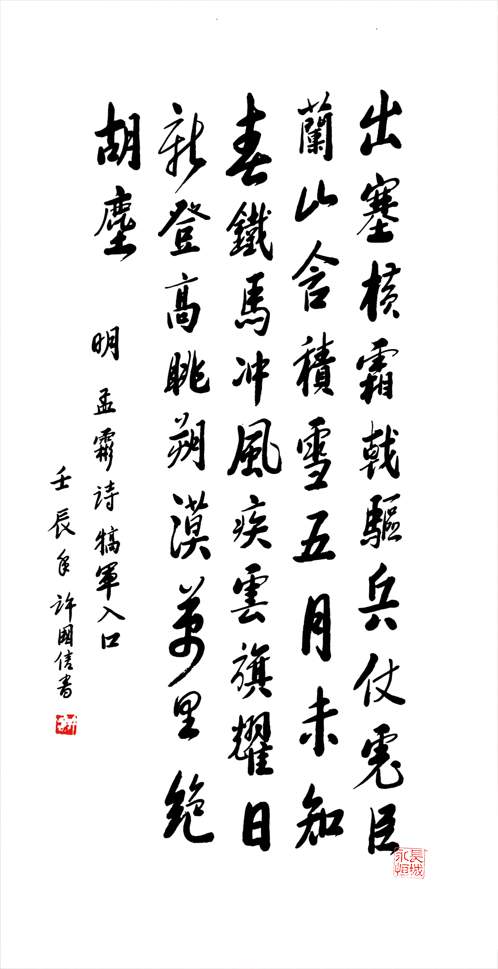 出塞橫霜戟驅兵仗虎臣
蘭山含積雪五月未知
春鐵馬冲風疾雲旗耀日
新登高眺朔漠萬里絶
胡塵
明 孟霦诗 犒軍入口
壬辰年 許國信書
長城永恒